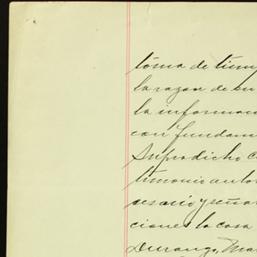 toma de tiem
la razon de su
la informac
con fundam
Supradicho C
timonio auto
esario y señ
ciones la cosa
Durango, Ma